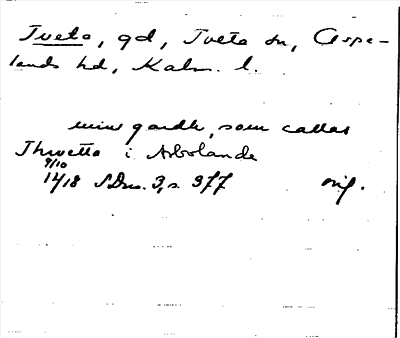 Tveta, gd, Tveta sn, Aspe-
lands hd, Kalm. l.
minə gardh, som callas
Thwetta i Asbolande
9/10
1418 SDns. 3, s. 377 orig.